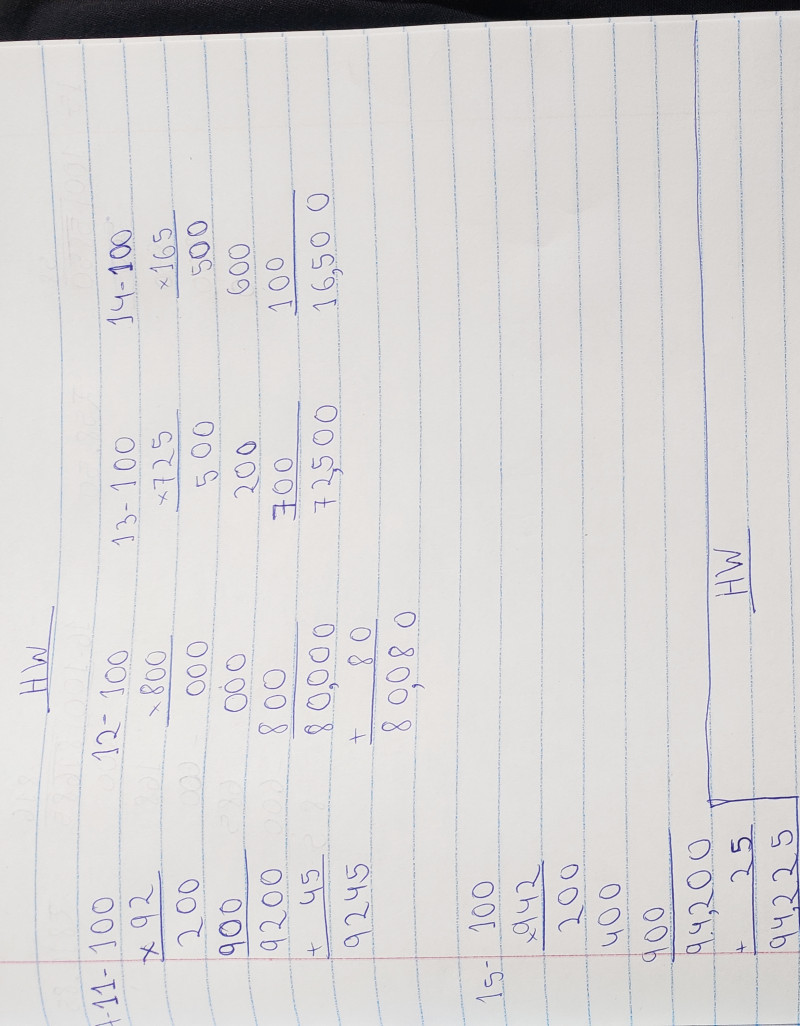 HW
11- 100
x 92
200
900
9200
+ 45
9245
12- 100
x 800
000
000
800
80,000
+ 80
80,080
13- 100
x725
500
200
700
72,500
14-100
x165
500
600
100
16,500
15- 100
x942
200
400
900
94,200
+ 25
94,225
HW